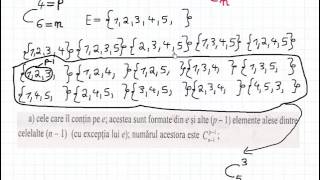 C 4=p 6=m E={1,2,3,4,5, } m
{1,2,3,4} {1,2,3,5} {2,3,4,5} {1,3,4,5} {1,2,4,5}
{1,2,3, } {1,2,4, } {1,2,5, } {1,3,4, } {1,3,5, }
{1,4,5, } {2,4,5, } {2,3,4, } {4,5,3, }
a) cele care îl conțin pe e; acestea sunt formate din e și alte (p – 1) elemente alese dintre
celelalte (n – 1) (cu excepția lui e); numărul acestora este C p-1 n-1 ;
C 3 5